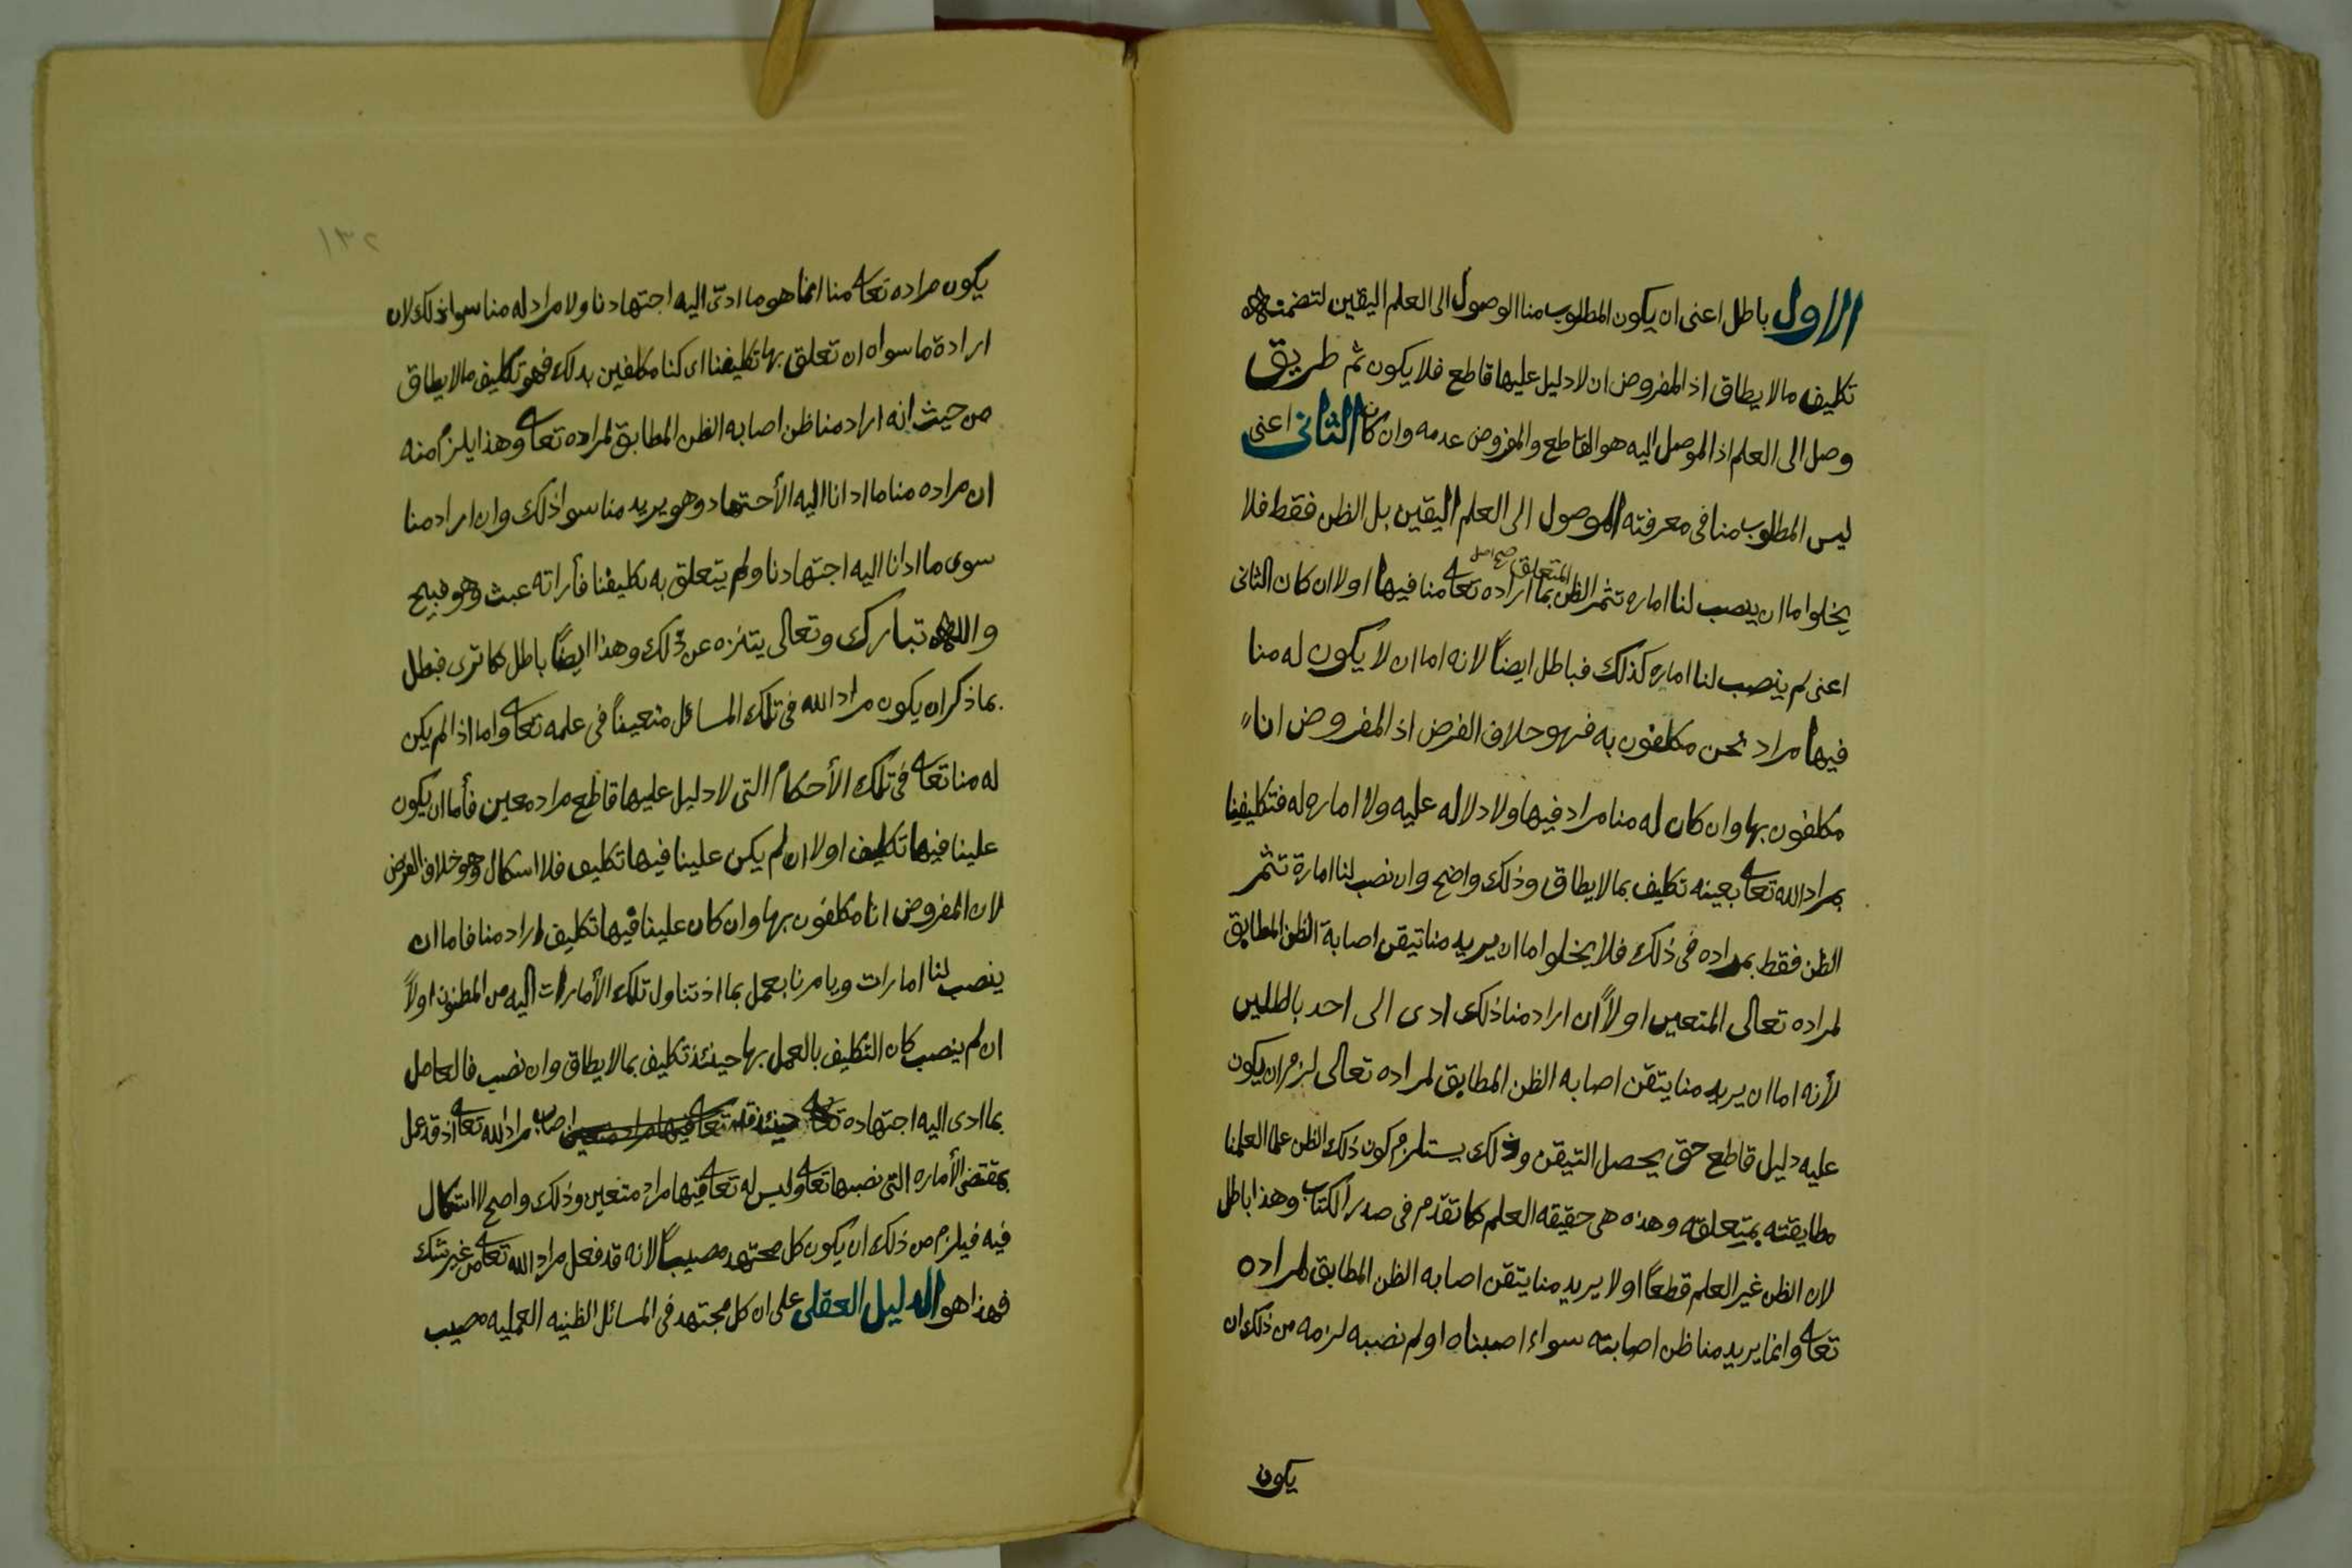 الاول باطل اعنى ان يكون المطلوب منا الوصول الى العلم اليقين لتضمنه
تكليف مالا يطاق اذ المفروض ان لا دليل عليها قاطع فلا يكون ثم طريق
وصل الى العلم اذ الموصل اليه هو القاطع والمفروض عدمه وان كان الثانى اعنى
ليس المطلوب منا فى معرفته الموصول الى العلم اليقين بل الظن فقط فلا
يخلوا ما ان ينصب لنا اماره تثمر الظن المتعلق صح اصل بما اراده تعا منا فيها او لا ان كان الثانى
اعنى لم ينصب لنا اماره كذلك فباطل ايضاً لانه اما ان لا يكون له منا
فيها مراد نحن مكلفون به فهو خلاف الفرض اذ المفروض انا
مكلفون بها وان كان له منا مراد فيها ولا دلاله عليه ولا اماره له فتكليفنا
بمراد الله تعا بعينه تكليف بما لا يطاق وذلك واضح وان نصب لنا امارة تثمر
الظن فقط بمراده فى ذلك فلا يخلوا ما ان يريد منا تيقن اصابة الظن المطابق
لمراده تعالى المتعين او لاً ان اراد منا ذلك ادى الى احد باطلين
لأنه اما ان يريد منا يتقن اصابه الظن المطابق لمراده تعالى لزم ان يكون
عليه دليل قاطع حتى يحصل التيقن وذلك يستلزم كون ذلك الظن علما لعلمنا
مطابقته بمتعلقه وهذه هى حقيقه العلم كما تقدم فى صدر الكتاب وهذا باطل
لان الظن غير العلم قطعاً او لا يريد منا يتقن اصابه الظن المطابق لمراده
تعا وانما يريد منا ظن اصابته سواء اصبناه او لم نصبه لزمه من ذلك ان
يكون
١٣٢
يكون مراده تعا منا انما هو ما ادى اليه اجتهادنا ولا مراد له منا سوا ذلك لان
ارادة ما سواه ان تعلق بها تكليفنا اى كنا مكلفين بذلك فهو تكليف مالا يطاق
من حيث انه اراد منا ظن اصابه الظن المطابق لمراده تعا وهذا يلزم منه
ان مراده منا ما ادانا اليه الأجتهاد وهو يريد منا سوا ذلك وان اراد منا
سوى ما ادانا اليه اجتهادنا ولم يتعلق به تكليفنا فأراته عبث وهو قبيح
والله تبارك وتعالى يتنزه عن ذلك وهذا ايضاً باطل كما ترى فبطل
بما ذكر ان يكون مراد الله فى تلك المسائل متعيناً فى علمه تعا واما اذا لم يكن
له منا تعا فى تلك الأحكام التى لا دليل عليها قاطع مراد معين فأما ان يكون
علينا فيها تكليف او لا ان لم يكن علينا فيها تكليف فلا اشكال وهو خلاف الفرض
لان المفروض انا مكلفون بها وان كان علينا فيها تكليف اراد منا فاما ان
ينصب لنا امارات ويامرنا بعمل بما اذ تناول تلك الأمارات اليه من المظنون او لاً
ان لم ينصب كان التكليف بالعمل بها حينئذ تكليف بما لا يطاق وان نصب فالعامل
بما ادى اليه اجتهاده اصاب مراد الله تعا اذ قد عمل
بمقتضى الأماره التى نصبها تعا وليس له تعا فيها مراد متعين وذلك واضح لا اشكال
فيه فيلزم من ذلك ان يكون كل مجتهد مصيباً لانه قد فعل مراد الله تعا من غير شك
فهذا هو الدليل العقلى على ان كل مجتهد فى المسائل الظنيه العمليه مصيب